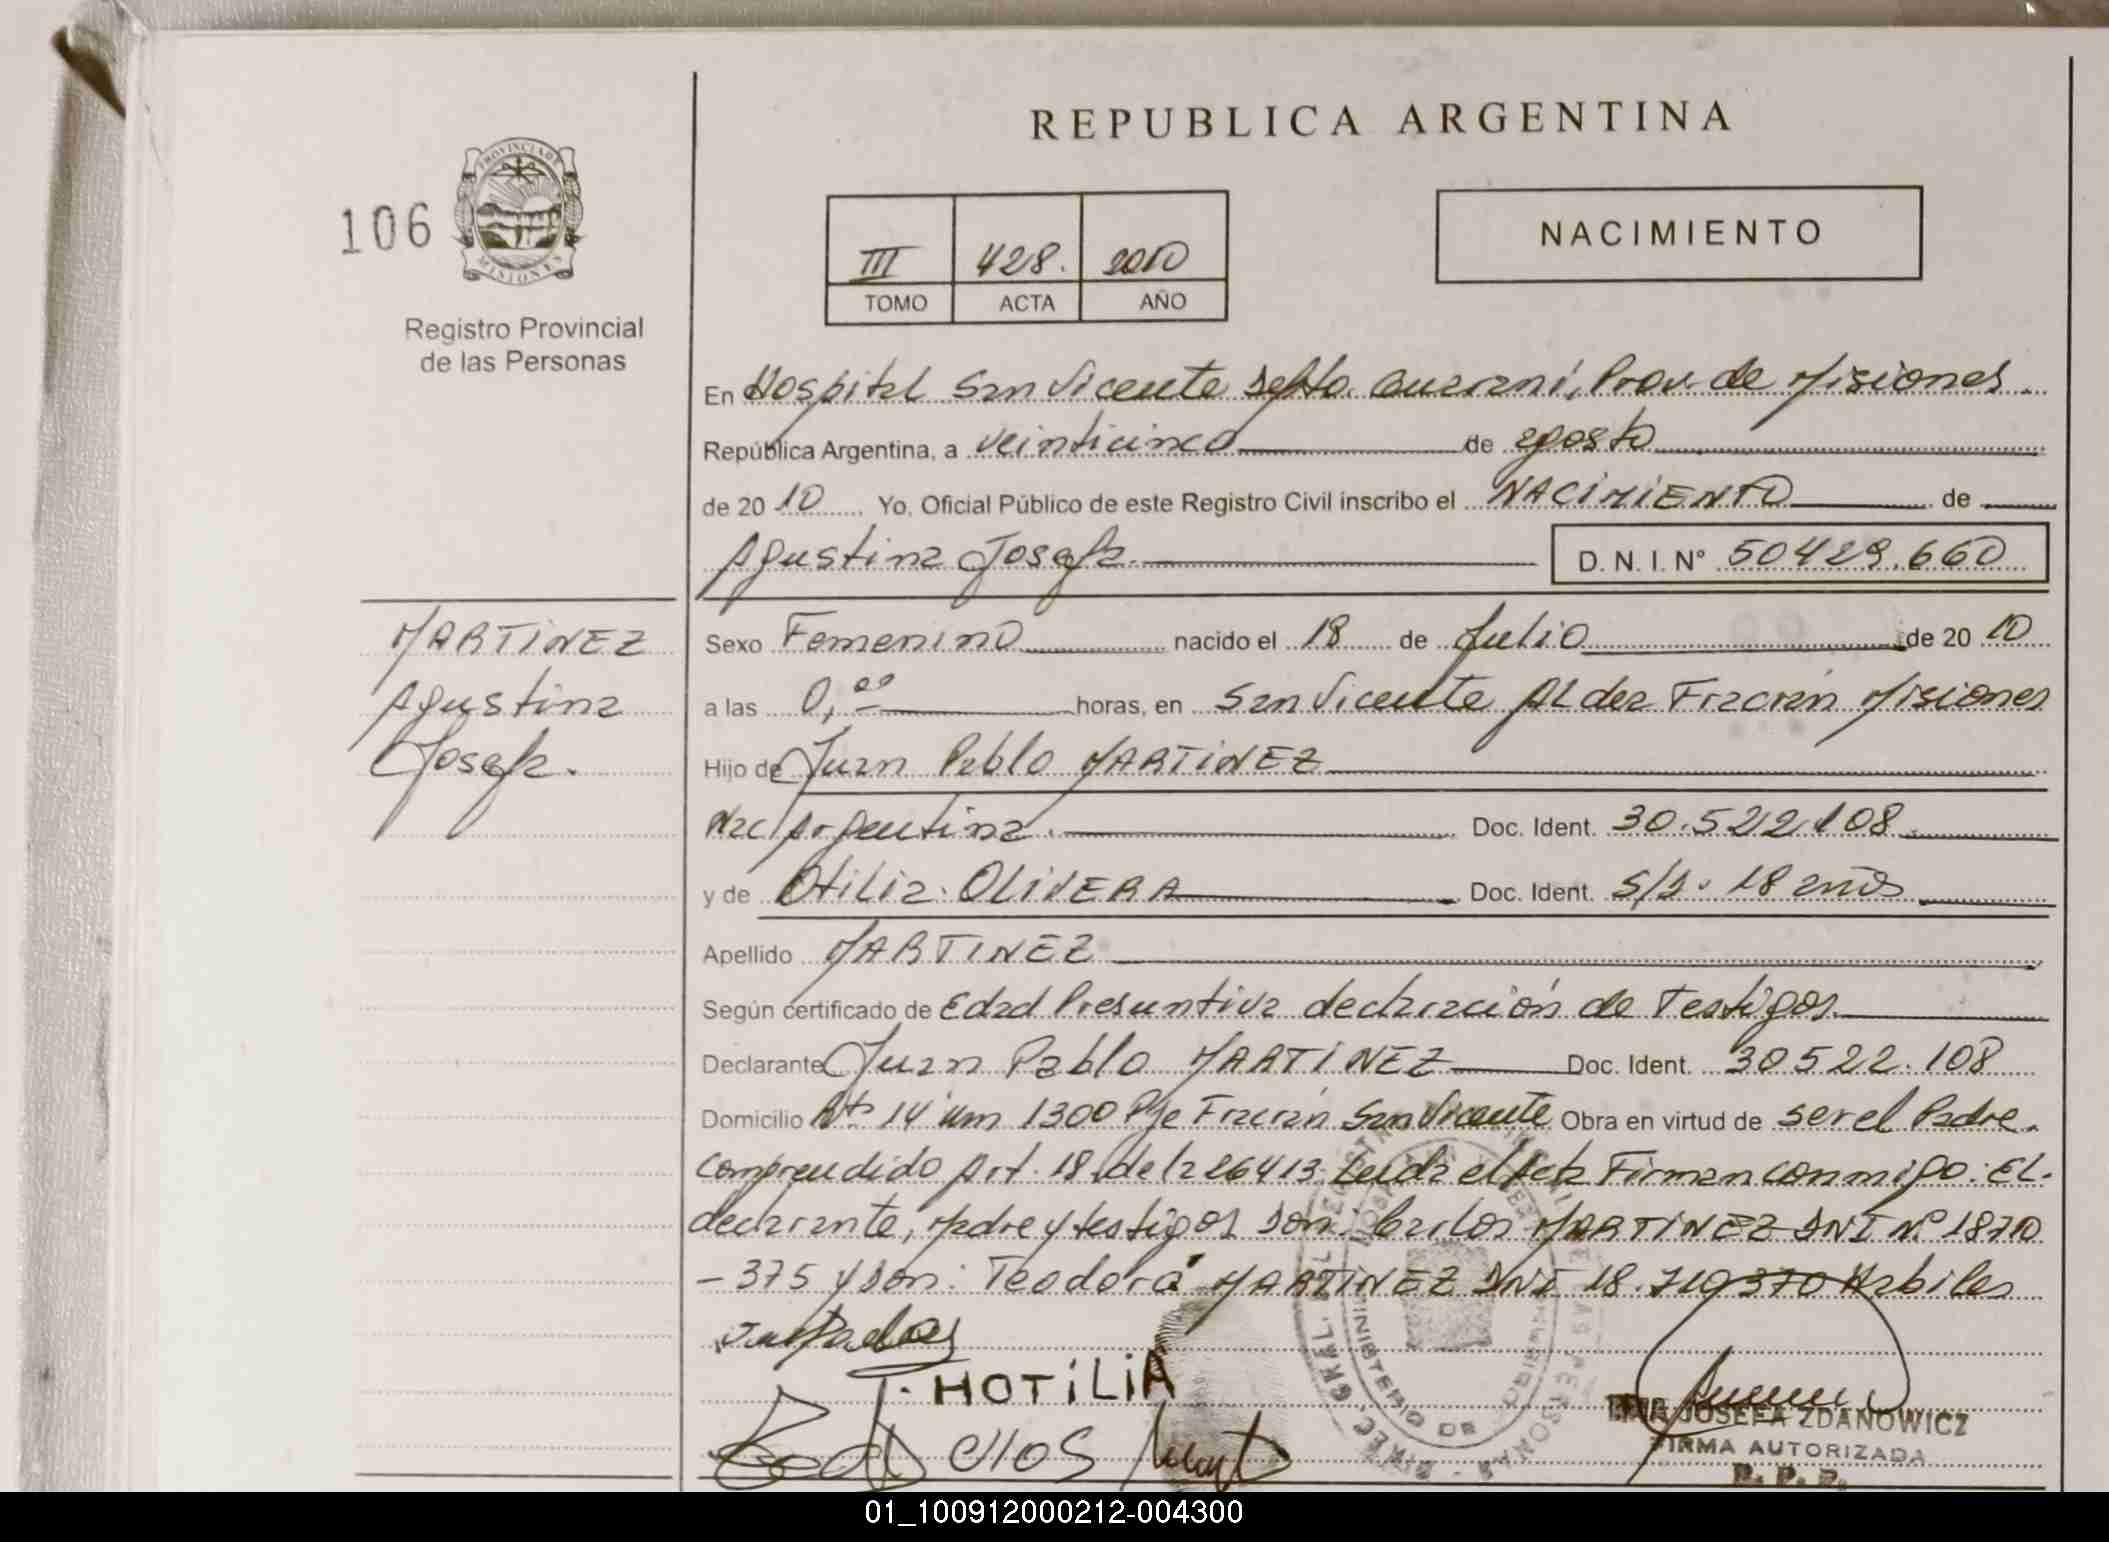 REPUBLICA ARGENTINA
106
PROVINCIA DE
MISIONES
Registro Provincial
de las Personas
III 428. 2010
TOMO ACTA AÑO
NACIMIENTO
En Hospital San Vicente Depto. Guaraní, Prov. de Misiones
República Argentina, a veinticinco de agosto
de 20 10 Yo, Oficial Público de este Registro Civil inscribo el NACIMIENTO de
Agustina Josefa. D. N. I. N° 50429.660
MARTINEZ
Agustina
Josefa.
Sexo Femenino nacido el 18 de Julio de 20 10
a las 0,00 horas, en San Vicente Aldea Fracrán Misiones
Hijo de Juan Pablo MARTINEZ
Nac/Argentina. Doc. Ident. 30.522.108
y de Otilia. OLIVERA Doc. Ident. S/D. 18 años
Apellido MARTINEZ
Según certificado de Edad Presuntiva declaración de Testigos.
Declarante Juan Pablo MARTINEZ Doc. Ident. 30522.108
Domicilio Rta 14 Km 1300 Pje Fracrán San Vicente Obra en virtud de ser el Padre.
Comprendido Art. 18 de la 26413 Leida el Acta Firman conmigo: El
declarante, Madre y testigos Don: Carlos MARTINEZ DNI Nº 18710
-375 y Don: Teodora MARTINEZ DNI 18.719370 Habiles
HOTiLiA
JOSEFA ZDANOWICZ
FIRMA AUTORIZADA
R. P. P.
01_100912000212-004300